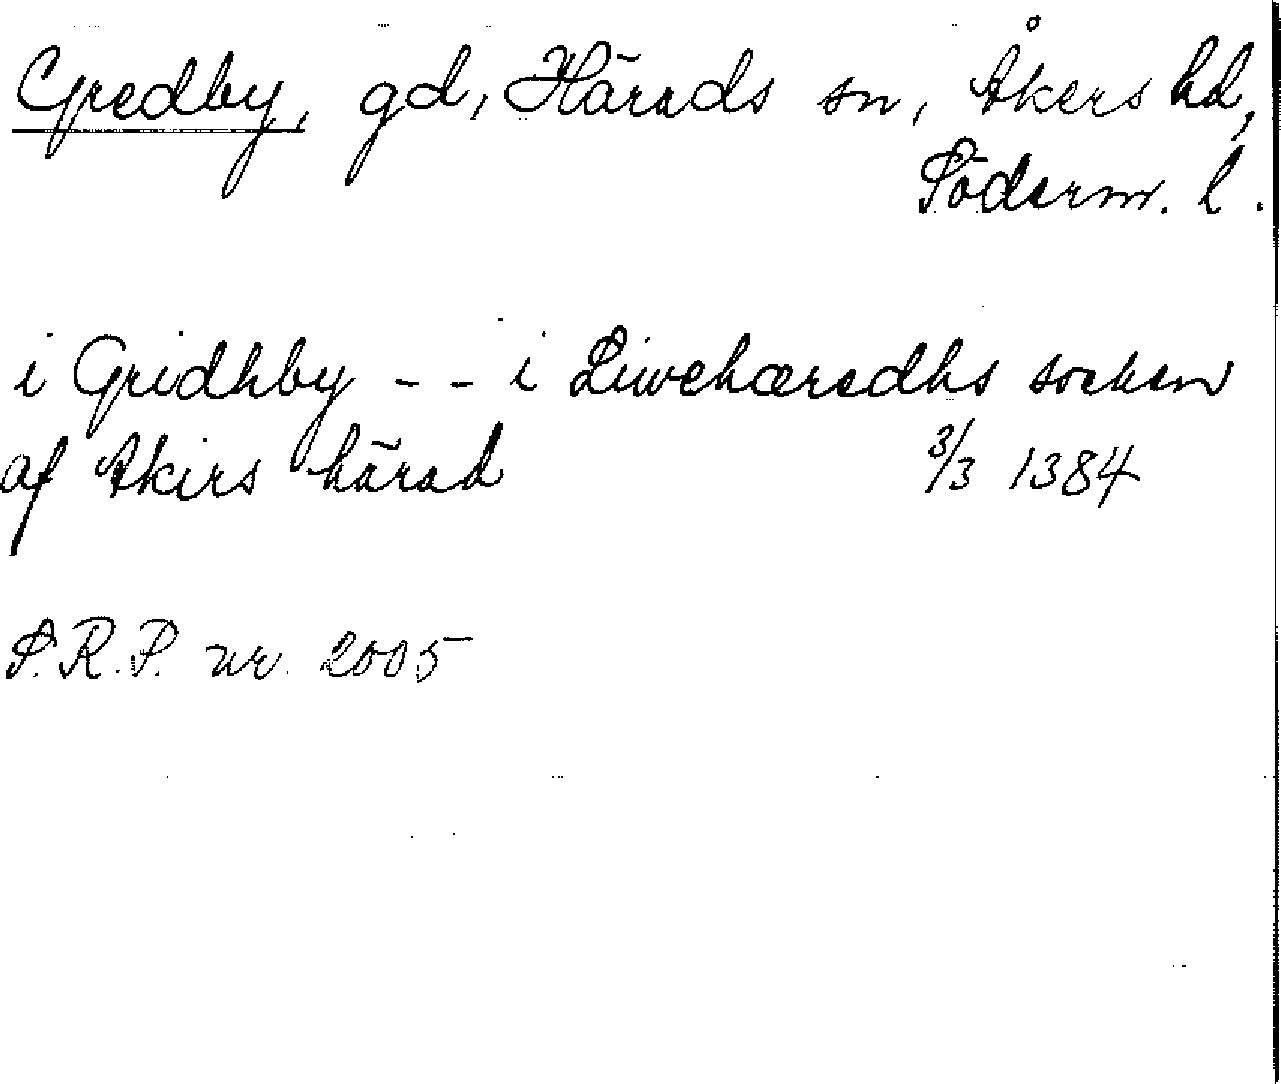 Gredby, gd, Härads sn, Åkers hd,
Söderm. l.
i Gridhby - - i Liwehæredhs socken
af Akirs härad 3/3 1384
S.R.P. nr. 2005